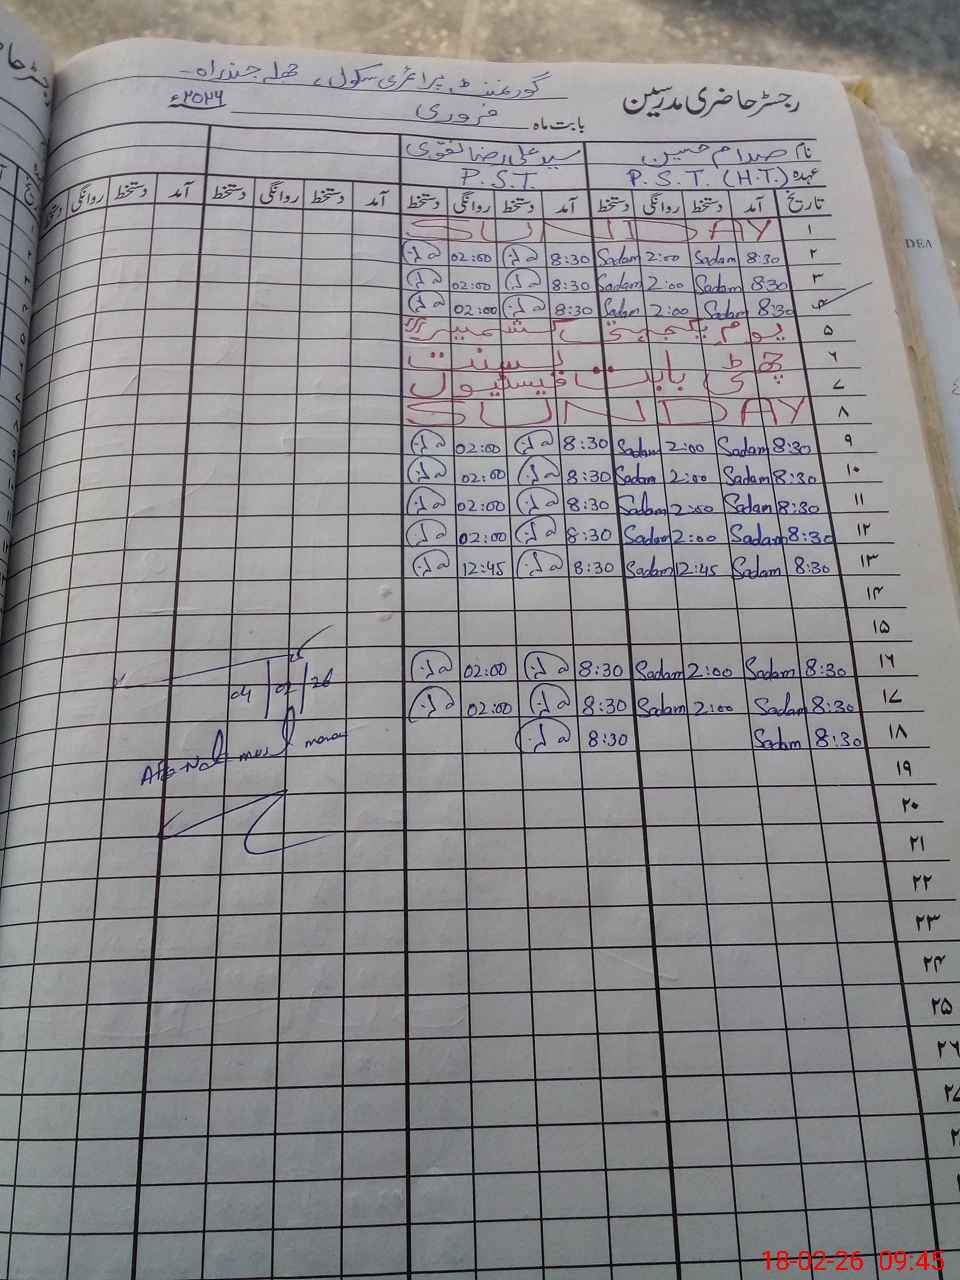 رجسٹر حاضری مدرسین
گورنمنٹ پرائمری سکول،
بابت ماہ فروری ۲۰۲۶ء
نام صدام حسین سید علی رضا نقوی
عہدہ P.S.T. (H.T.) P.S.T.
تاریخ آمد دستخط روانگی دستخط آمد دستخط روانگی دستخط آمد دستخط روانگی دستخط آمد دستخط روانگی
۱ SUNDAY
۲ 8:30 Sadam 2:00 Sadam 8:30 02:00
۳ 8:30 Sadam 2:00 Sadam 8:30 02:00
۴ 8:30 Sadam 2:00 Sadam 8:30 02:00
۵ یوم یکجہتی کشمیر
۶ چھٹی بابت بسنت
۷ فیسٹیول
۸ SUNDAY
۹ 8:30 Sadam 2:00 Sadam 8:30 02:00
۱۰ 8:30 Sadam 2:00 Sadam 8:30 02:00
۱۱ 8:30 Sadam 2:00 Sadam 8:30 02:00
۱۲ 8:30 Sadam 2:00 Sadam 8:30 02:00
۱۳ 8:30 Sadam 12:45 Sadam 8:30 12:45
۱۴
۱۵
۱۶ 8:30 Sadam 2:00 Sadam 8:30 02:00
۱۷ 8:30 Sadam 2:00 Sadam 8:30 02:00
۱۸ 8:30 Sadam 8:30
۱۹
۲۰
۲۱
۲۲
۲۳
۲۴
۲۵
۲۶
04/02/26
18-02-26 09:45